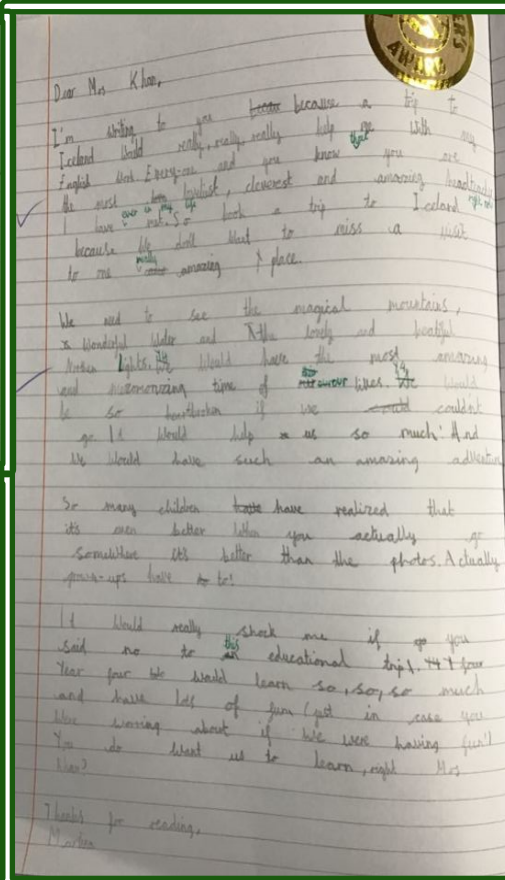 AWARD
Dear Mrs Khan,
I'm writing to you because a trip to
Iceland would really, really, really help me with my
English work. Every-one and you know that you are
the most lovliest, cleverest and amazing
I have ever in my life met. So book a trip to Iceland right now
because we don't want to miss a visit
to one really amazing place.
We need to see the magical mountains,
wonderful water and the lovely and beatiful
Northen lights. We would have the most amazing
and time of our lives. We would
be so heartbroken if we couldn't
go. It would help us so much! And
we would have such an amazing adventure
So many children have realized that
it's even better when you actually go
somewhere it's better than the photos. Actually
grown-ups have to!
It would really shock me if you
said no to this educational trip!
Year four we would learn so, so, so much
and have lots of fun (just in case you
were worring about if we were having fun!)
You do want us to learn, right Mrs
Khan?
Thanks for reading,